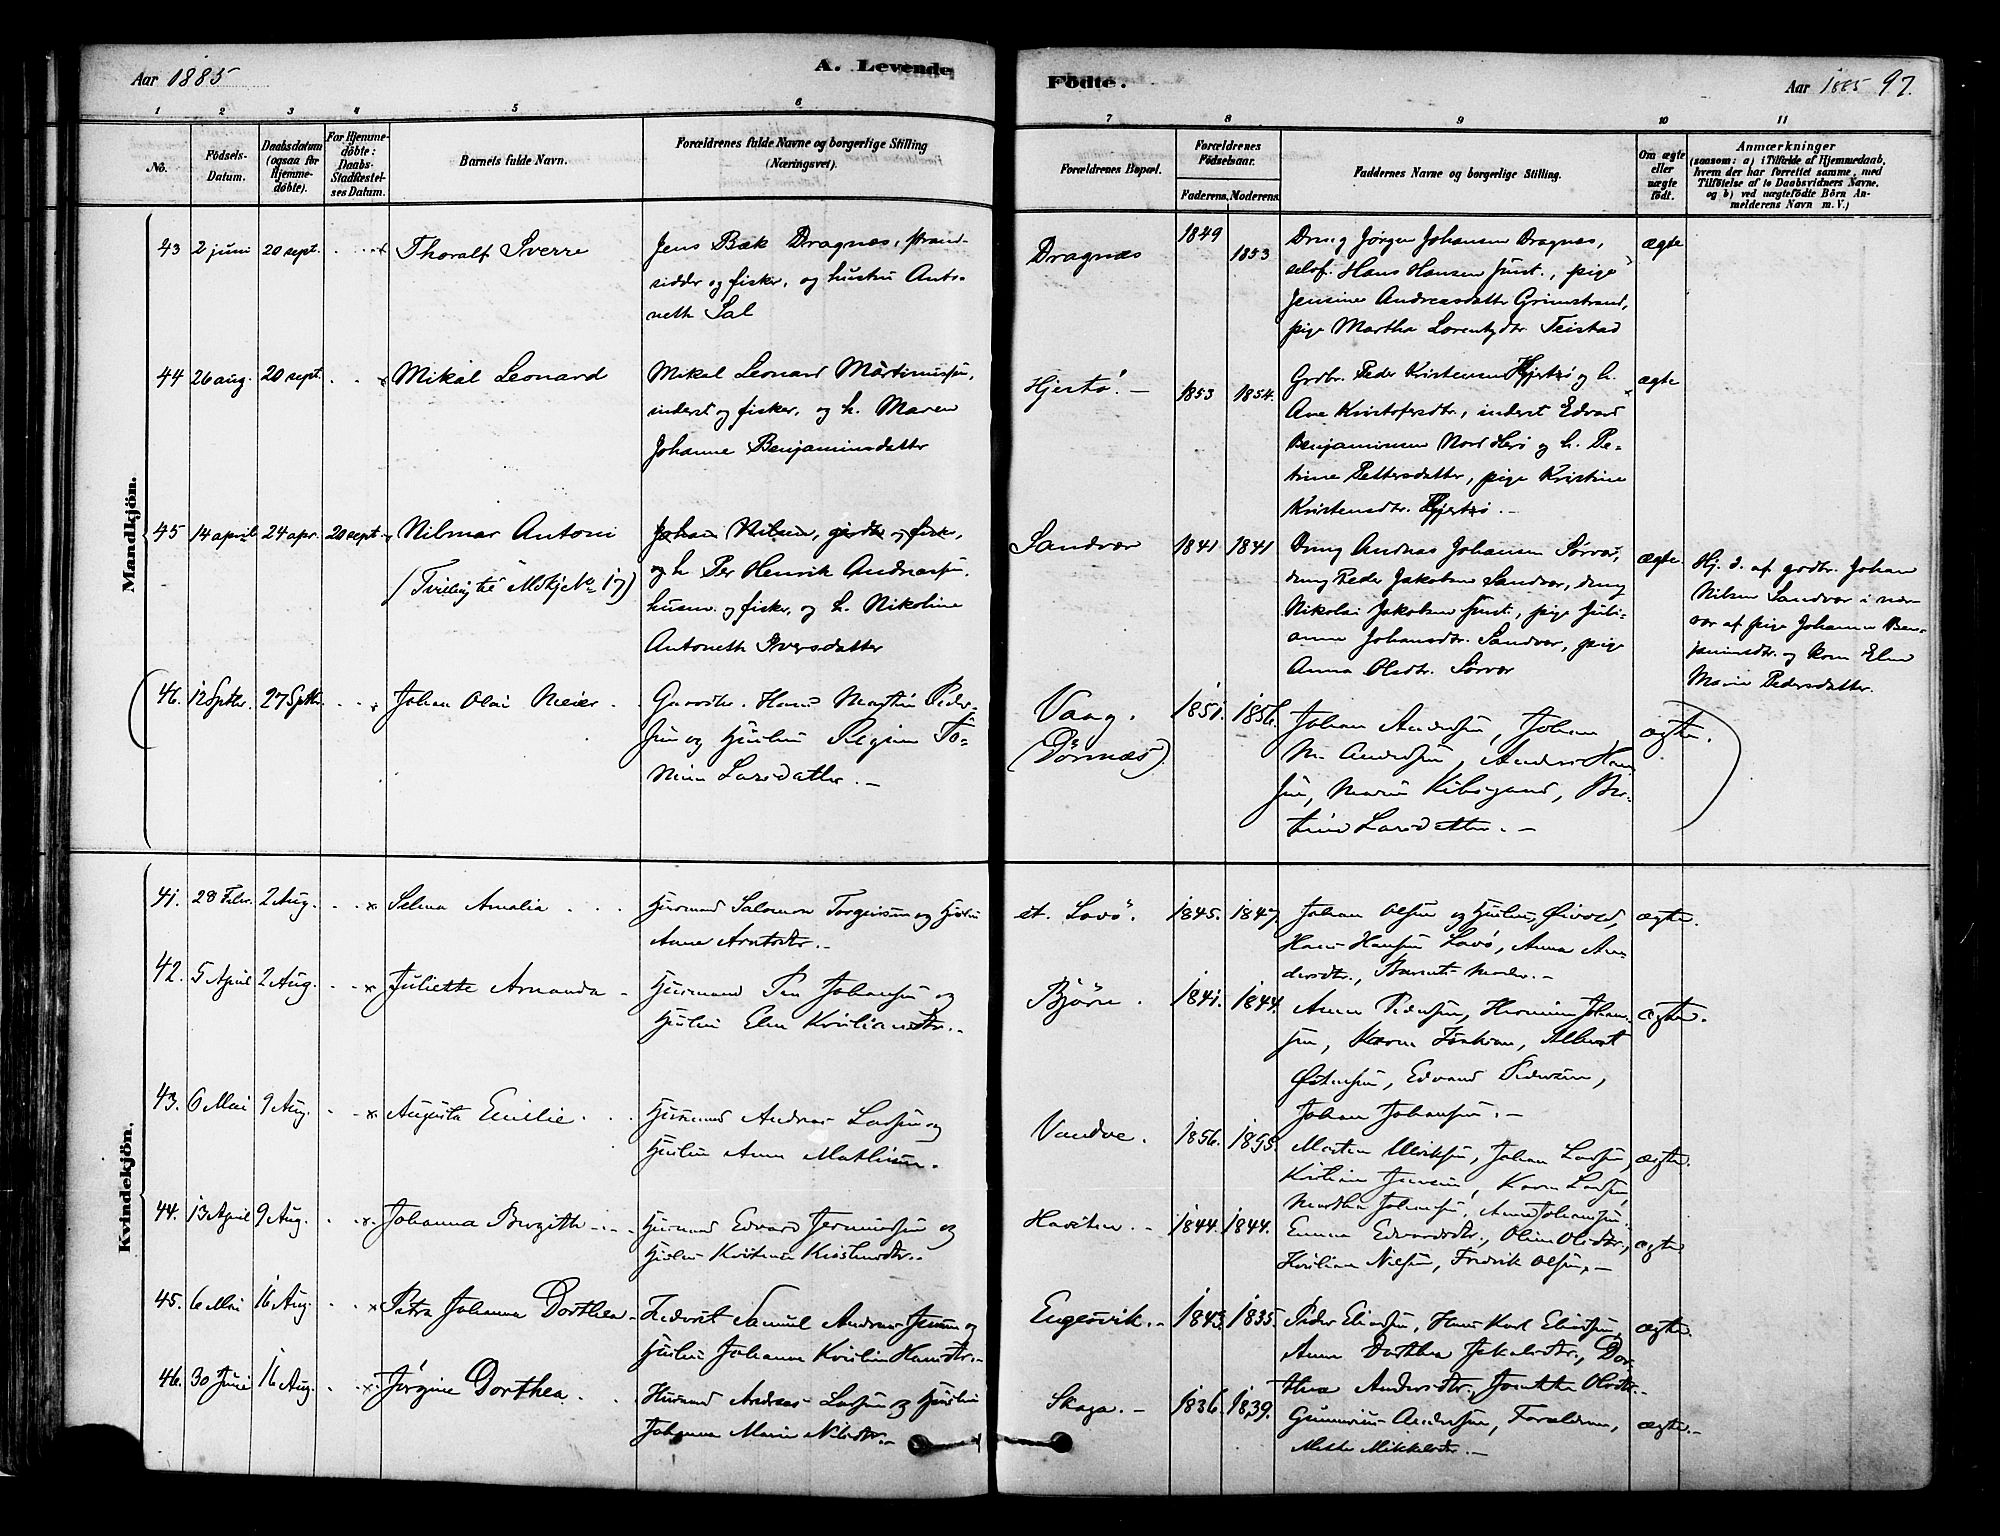 Aar 1885
A. Levende
Födte.
Aar 1885 97.
1 2 3 4 5 6 7 8 9 10 11
No.
Födsels-
Datum.
Daabsdatum
(ogsaa for
Hjemme-
döbte).
For Hjemme-
döbte:
Daabs-
Stadfæstel-
ses Datum.
Barnets fulde Navn.
Forældrenes fulde Navne og borgerlige Stilling
(Næringsvei).
Forældrenes Bopæl.
Forældrenes
Födselsaar.
Faderens. Moderens.
Faddernes Navne og borgerlige Stilling.
Om ægte
eller
uægte
födt.
Anmærkninger
(saasom: a) i Tilfælde af Hjemmedaab,
hvem der har forrettet samme, med
Tilföielse af to Daabsvidners Navne,
og b) ved uægtefödte Börn An-
melderens Navn m. V.)
Mandkjön.
43 2 juni 20 sept. Thoralf Sverre
Jens Bæk Dragnæs, strand-
sidder og fisker, og hustru Anto-
neth Sal
Dragnæs
1849 1853
Dreng Jørgen Johansen Dragnæs,
selvf. Hans Hansen smst., pige
Jensine Andreasdatter Grimstrand,
pige Martha Lorentzdtr. Teistad
ægte
44 26 aug. 20 sept. Mikal Leonard
Mikal Leonard Martinussen,
inderst og fisker, og h. Maren
Johanne Benjaminsdatter
Hjertø. —
1853 1854.
Grdbr. Peder Kristensen Hjertø og h.
Ane Kristofersdtr., inderst Edvard
Benjaminsen Nord Herø og h. Pe-
trine Pettersdatter, pige Kristine
Kristensdtr. Hjertø. —
ægte
45 14 april 24 apr. 20 sept. Nilmar Antoni
(Tvilling til Mskj. No 17)
Johan Nilsen, grdbr og fisker,
og h Per Henrik Andreassen,
husm. og fisker, og h. Nikoline
Antoneth Iversdatter
Sandvær
1841 1841
Dreng Andreas Johansen Sørvær,
dreng Peder Jakobsen Sandvær, dreng
Nikolai Jakobsen smst., pige Juli-
anna Johansdtr. Sandvær, pige
Anna Olsdtr. Sørvær
ægte
Hj. d. af grdbr. Johan
Nilsen Sandvær i nær-
vær af pige Johanna Ben-
jaminsdtr. og kone Elen
Marie Pedersdatter.
46. 12 Septbr. 27 Septbr. Johan Olai Meier.
Gaardbr. Hans Martin Peder-
sen og Hustru Regine To-
mine Larsdatter. —
Vaag.
(Dønnæs)
1851. 1856.
Johan Andersen, Johan
M. Andersen, Anders Han-
sen, Marie Kibsgaard, Ber-
tine Larsdatter. —
ægte.
Kvindekjön.
41. 28 Febr. 2 Aug. Selma Amalia
Husmand Salomon Torgersen og Hustru
Anne Arntsdtr. —
st. Lovø.
1845. 1847.
Johan Olsen og Hustru,
Hans Hansen Lovø, Anna An-
dersdtr., Barnets Moder. —
ægte.
42. 5 April 2 Aug. Juliette Amanda
Husmand Peu Johansen og
Hustru Elen Kristiansdtr. —
Bjørn.
1841. 1844.
Anne Pedersen, Hermine Johan-
sen, Albert
Østensen, Edvard Pedersen,
Johan Johansen. —
ægte.
43. 6 Mai 9 Aug. Augusta Emilie
Husmand Andreas Larsen og
Hustru Anne Mathisen.
Vandve.
1856. 1855.
Martin Ulriksen, Johan Larsen,
Kristian Jensen, Karen Larsen,
Martha Johansen, Anne Johansen.
ægte.
44. 13 April 9 Aug. Johanna Birgith
Husmand Edvard Jermiassen og
Hustru Kristense Kristensdtr. —
Havsten. —
1844. 1844.
Emma Edvardsdtr., Oline Olsdtr.,
Kristian Nielsen, Fredrik Olsen. —
ægte
45. 6 Mai 16 Aug. Petra Johanna Dorthea
Inderst Samuel Andreas Jensen og
Hustru Johanna Kristine Hansdtr. —
Engesvik. —
1843. 1835.
Peder Eliassen, Hans Karl Eliassen,
Anne Dorthea Jakobsdtr., Dor-
thea Andersdtr., Olsdtr. —
ægte.
46. 30 Juni 16 Aug. Jørgine Dorthea.
Husmand Andreas Larsen og Hustru
Johanna Marie Nilsdtr. —
Skaga. —
1836. 1839.
Gunnerius Andersen, Forældrene,
Mette Mikkelsdtr. —
ægte. —